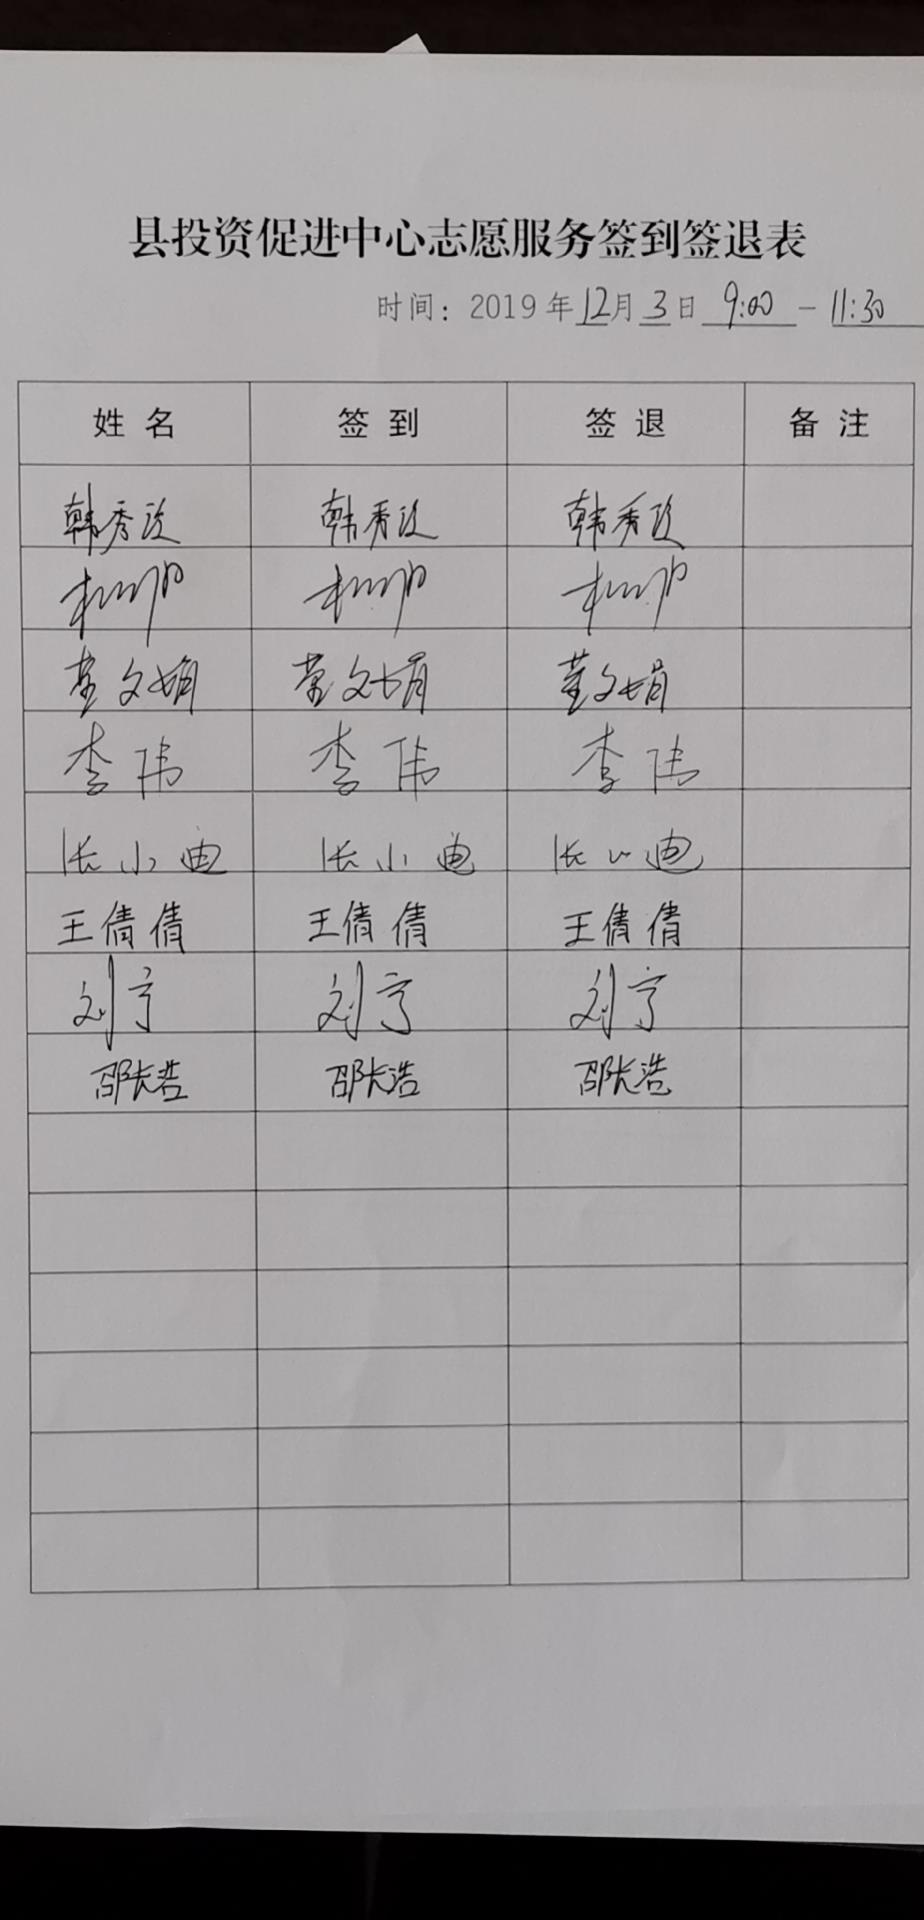 县投资促进中心志愿服务签到签退表
时间：2019年12月3日 9:00 - 11:30
姓名 签到 签退 备注
韩秀 韩秀 韩秀
董文娟 董文娟 董文娟
李伟 李伟 李伟
张小迪 张小迪 张小迪
王倩倩 王倩倩 王倩倩
刘亨 刘亨 刘亨
邵长浩 邵长浩 邵长浩